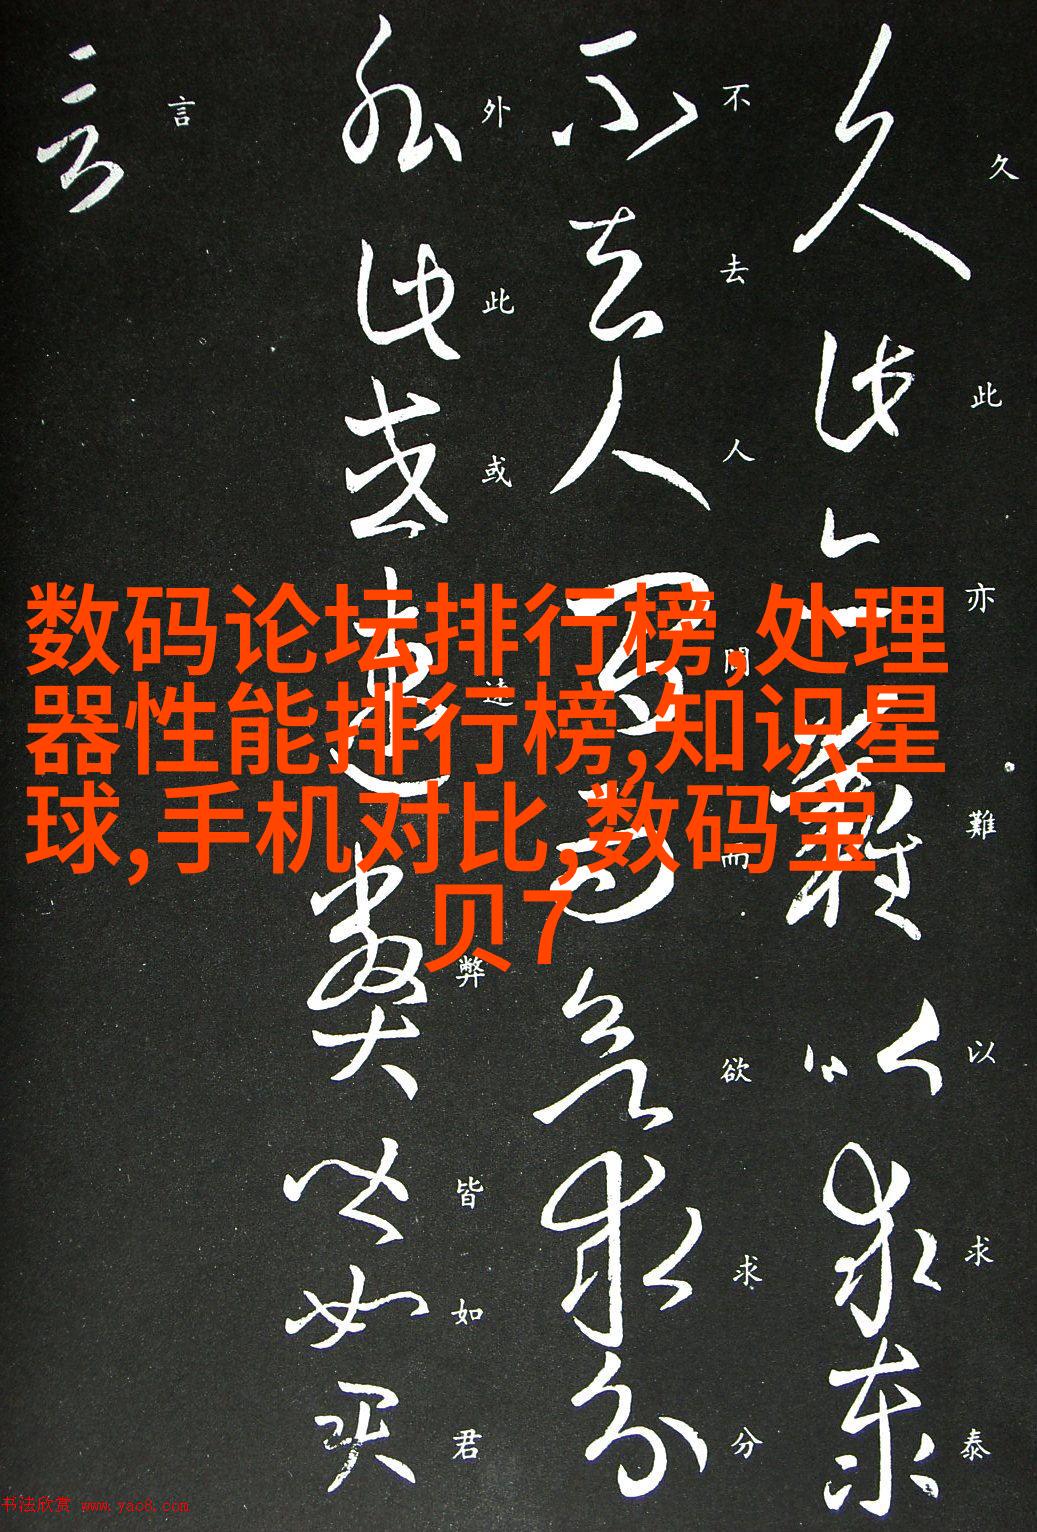 久此亦難以求泰
不去人間而欲求分
外此或速弊皆如君
言
数码论坛排行榜,处理
器性能排行榜,知识星
球,手机对比,数码宝
贝7
书法欣赏 www.yac8.com